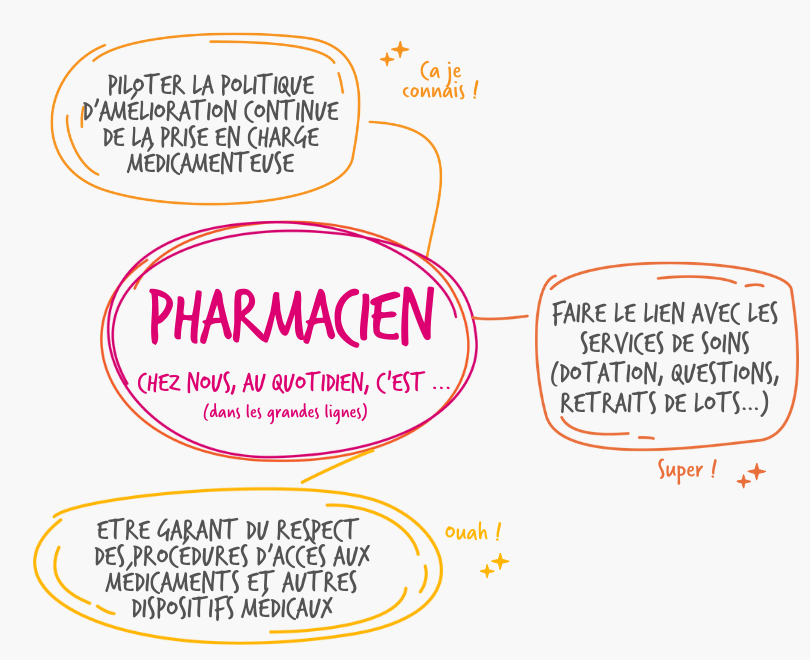 PILOTER LA POLITIQUE
D'AMÉLIORATION CONTINUE
DE LA PRISE EN CHARGE
MÉDICAMENTEUSE
Ca je
connais !
PHARMACIEN
CHEZ NOUS, AU QUOTIDIEN, C'EST ...
(dans les grandes lignes)
FAIRE LE LIEN AVEC LES
SERVICES DE SOINS
(DOTATION, QUESTIONS,
RETRAITS DE LOTS...)
Super !
ETRE GARANT DU RESPECT
DES PROCÉDURES D'ACCÈS AUX
MÉDICAMENTS ET AUTRES
DISPOSITIFS MÉDICAUX
Ouah !